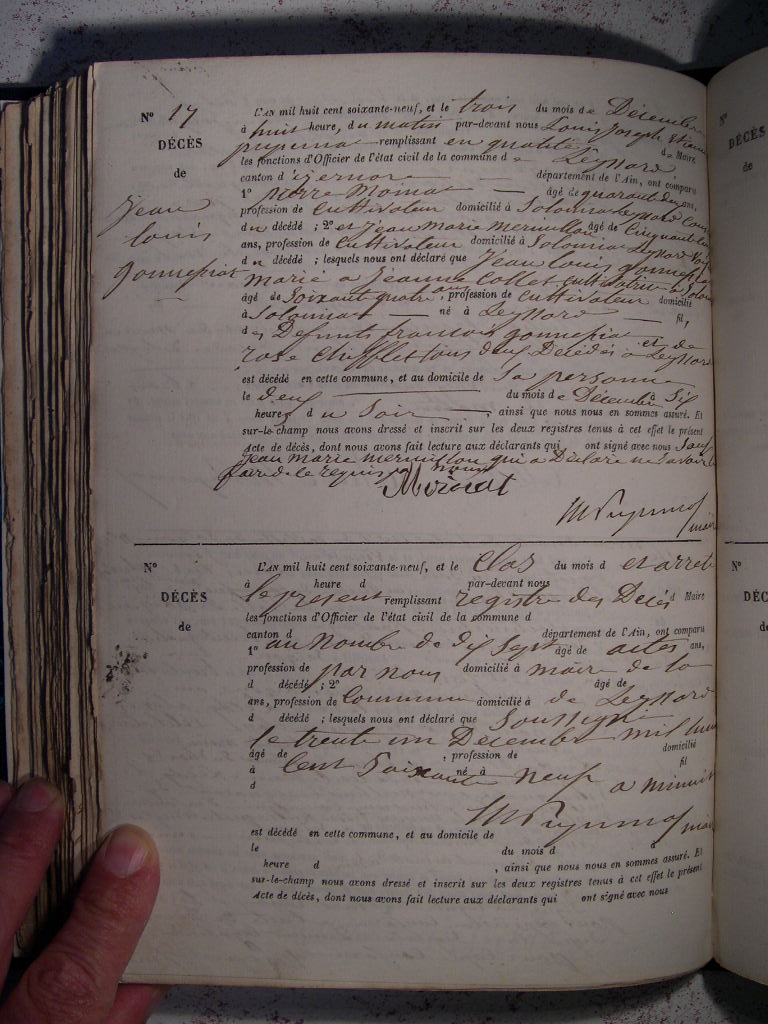 N° 17
DÉCÈS
de
jean
louis
gonnessiat
L'AN mil huit cent soixante-neuf, et le trois du mois de Décembre
à huit heure, du matin par-devant nous Louis Joseph
remplissant en qualité de Maire
les fonctions d'Officier de l'état civil de la commune de Leyssard
canton d'izernore département de l'Ain, ont comparu
1° pierre Moinat âgé de quarant deux ans,
profession de Cultivateur domicilié à Solomiat Leyssard
du décédé ; 2° et Jean marie mermillon âgé de Cinquant
ans, profession de Cultivateur domicilié à Solomiat Leyssard
du décédé ; lesquels nous ont déclaré que Jean louis gonnessiat
marié a Jeanne Collet cultivatrice a
âgé de Soixant quatre ans, profession de Cultivateur domicilié
à Solomiat né à Leyssard fil,
des Defunts francois gonnessiat et de
rose Chifflet tous deux Décédés a Leyssard
est décédé en cette commune, et au domicile de Sa personne
le deux du mois de Décembre à Six
heures du Soir, ainsi que nous nous en sommes assuré. Et
sur-le-champ nous avons dressé et inscrit sur les deux registres tenus à cet effet le présent
Acte de décès, dont nous avons fait lecture aux déclarants qui ont signé avec nous Sauf
Jean marie mermillon qui a Déclaré ne Savoir
faire de le requis nous
Moinat
maire
N°
DÉCÈS
de
L'AN mil huit cent soixante-neuf, et le Clos du mois d et arreté
à heure d par-devant nous
le présent remplissant registre des Décés d Maire
les fonctions d'Officier de l'état civil de la commune d
canton d département de l'Ain, ont comparu
1° au nombre de dix Sept âgé de actes ans,
profession de par nous domicilié à maire de la
d décédé ; 2° âgé de
ans, profession de Commune domicilié à de Leyssard
d décédé ; lesquels nous ont déclaré que Soussigné
le trente un Décembre mil huit
âgé de , profession de domicilié
à Cent Soixante né à neuf a minuit fil
d
maire
est décédé en cette commune, et au domicile de
le du mois d à
heure d , ainsi que nous nous en sommes assuré. Et
sur-le-champ nous avons dressé et inscrit sur les deux registres tenus à cet effet le présent
Acte de décès, dont nous avons fait lecture aux déclarants qui ont signé avec nous
N°
DÉCÈS
de
N°
de